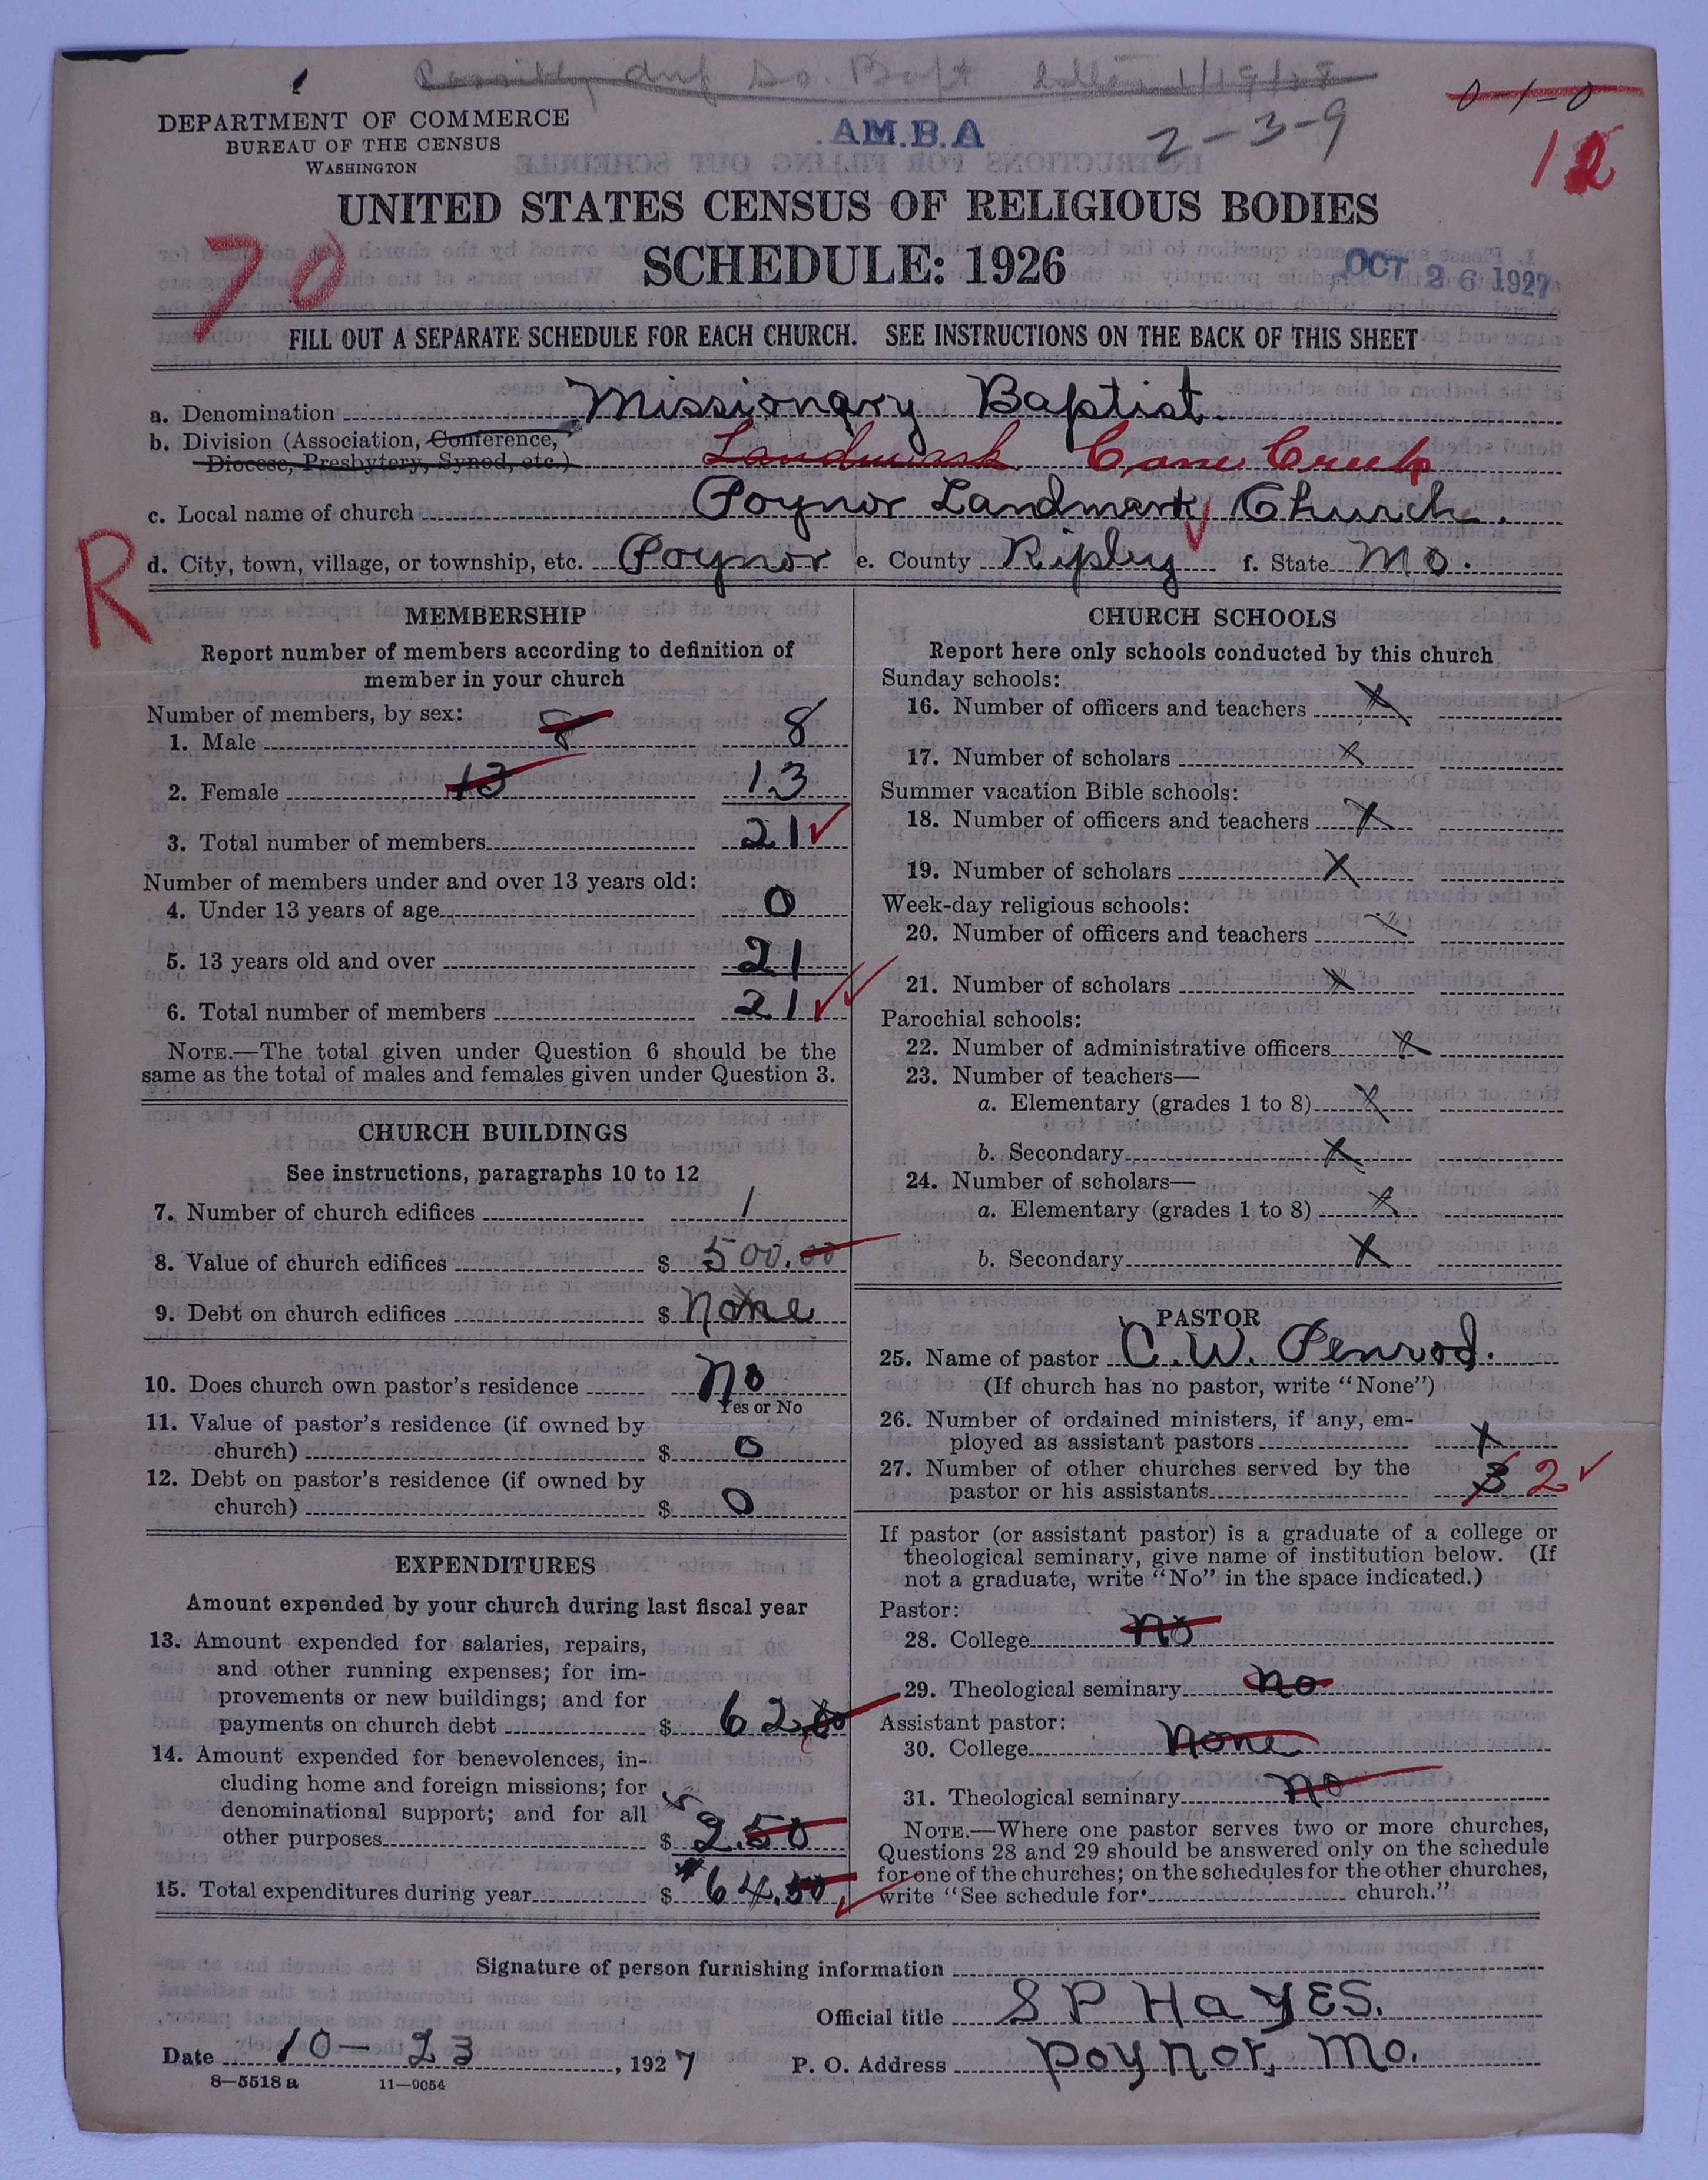 Possibly dup So. Bapt 1/19/28
DEPARTMENT OF COMMERCE
BUREAU OF THE CENSUS
WASHINGTON
A.M.B.A
2-3-9
0-1-0
12
UNITED STATES CENSUS OF RELIGIOUS BODIES
SCHEDULE: 1926
70
OCT 26 1927
FILL OUT A SEPARATE SCHEDULE FOR EACH CHURCH. SEE INSTRUCTIONS ON THE BACK OF THIS SHEET
a. Denomination Missionary Baptist
b. Division (Association, Conference,
Diocese, Presbytery, Synod, etc.) Landmark Cane Creek
c. Local name of church Poynor Landmark Church.
R
d. City, town, village, or township, etc. Poynor e. County Ripley f. State Mo.
MEMBERSHIP
Report number of members according to definition of
member in your church
Number of members, by sex:
1. Male 8 8
2. Female 13 13
3. Total number of members 21
Number of members under and over 13 years old:
4. Under 13 years of age 0
5. 13 years old and over 21
6. Total number of members 21
NOTE.—The total given under Question 6 should be the
same as the total of males and females given under Question 3.
CHURCH BUILDINGS
See instructions, paragraphs 10 to 12
7. Number of church edifices 1
8. Value of church edifices $ 500.00
9. Debt on church edifices $ none
10. Does church own pastor's residence No
Yes or No
11. Value of pastor's residence (if owned by
church) $ 0
12. Debt on pastor's residence (if owned by
church) $ 0
EXPENDITURES
Amount expended by your church during last fiscal year
13. Amount expended for salaries, repairs,
and other running expenses; for im-
provements or new buildings; and for
payments on church debt $ 62.00
14. Amount expended for benevolences, in-
cluding home and foreign missions; for
denominational support; and for all
other purposes $ 2.50
15. Total expenditures during year $ 64.50
CHURCH SCHOOLS
Report here only schools conducted by this church
Sunday schools:
16. Number of officers and teachers X
17. Number of scholars X
Summer vacation Bible schools:
18. Number of officers and teachers X
19. Number of scholars X
Week-day religious schools:
20. Number of officers and teachers X
21. Number of scholars X
Parochial schools:
22. Number of administrative officers X
23. Number of teachers—
a. Elementary (grades 1 to 8) X
b. Secondary X
24. Number of scholars—
a. Elementary (grades 1 to 8) X
b. Secondary X
PASTOR
25. Name of pastor C.W. Penrod.
(If church has no pastor, write "None")
26. Number of ordained ministers, if any, em-
ployed as assistant pastors X
27. Number of other churches served by the
pastor or his assistants 3 2
If pastor (or assistant pastor) is a graduate of a college or
theological seminary, give name of institution below. (If
not a graduate, write "No" in the space indicated.)
Pastor:
28. College no
29. Theological seminary no
Assistant pastor:
30. College None
31. Theological seminary no
NOTE.—Where one pastor serves two or more churches,
Questions 28 and 29 should be answered only on the schedule
for one of the churches; on the schedules for the other churches,
write "See schedule for church."
Signature of person furnishing information
Official title S P HaYES.
Date 10-23, 1927 P. O. Address Poynor, Mo.
8—5518 a 11—9054